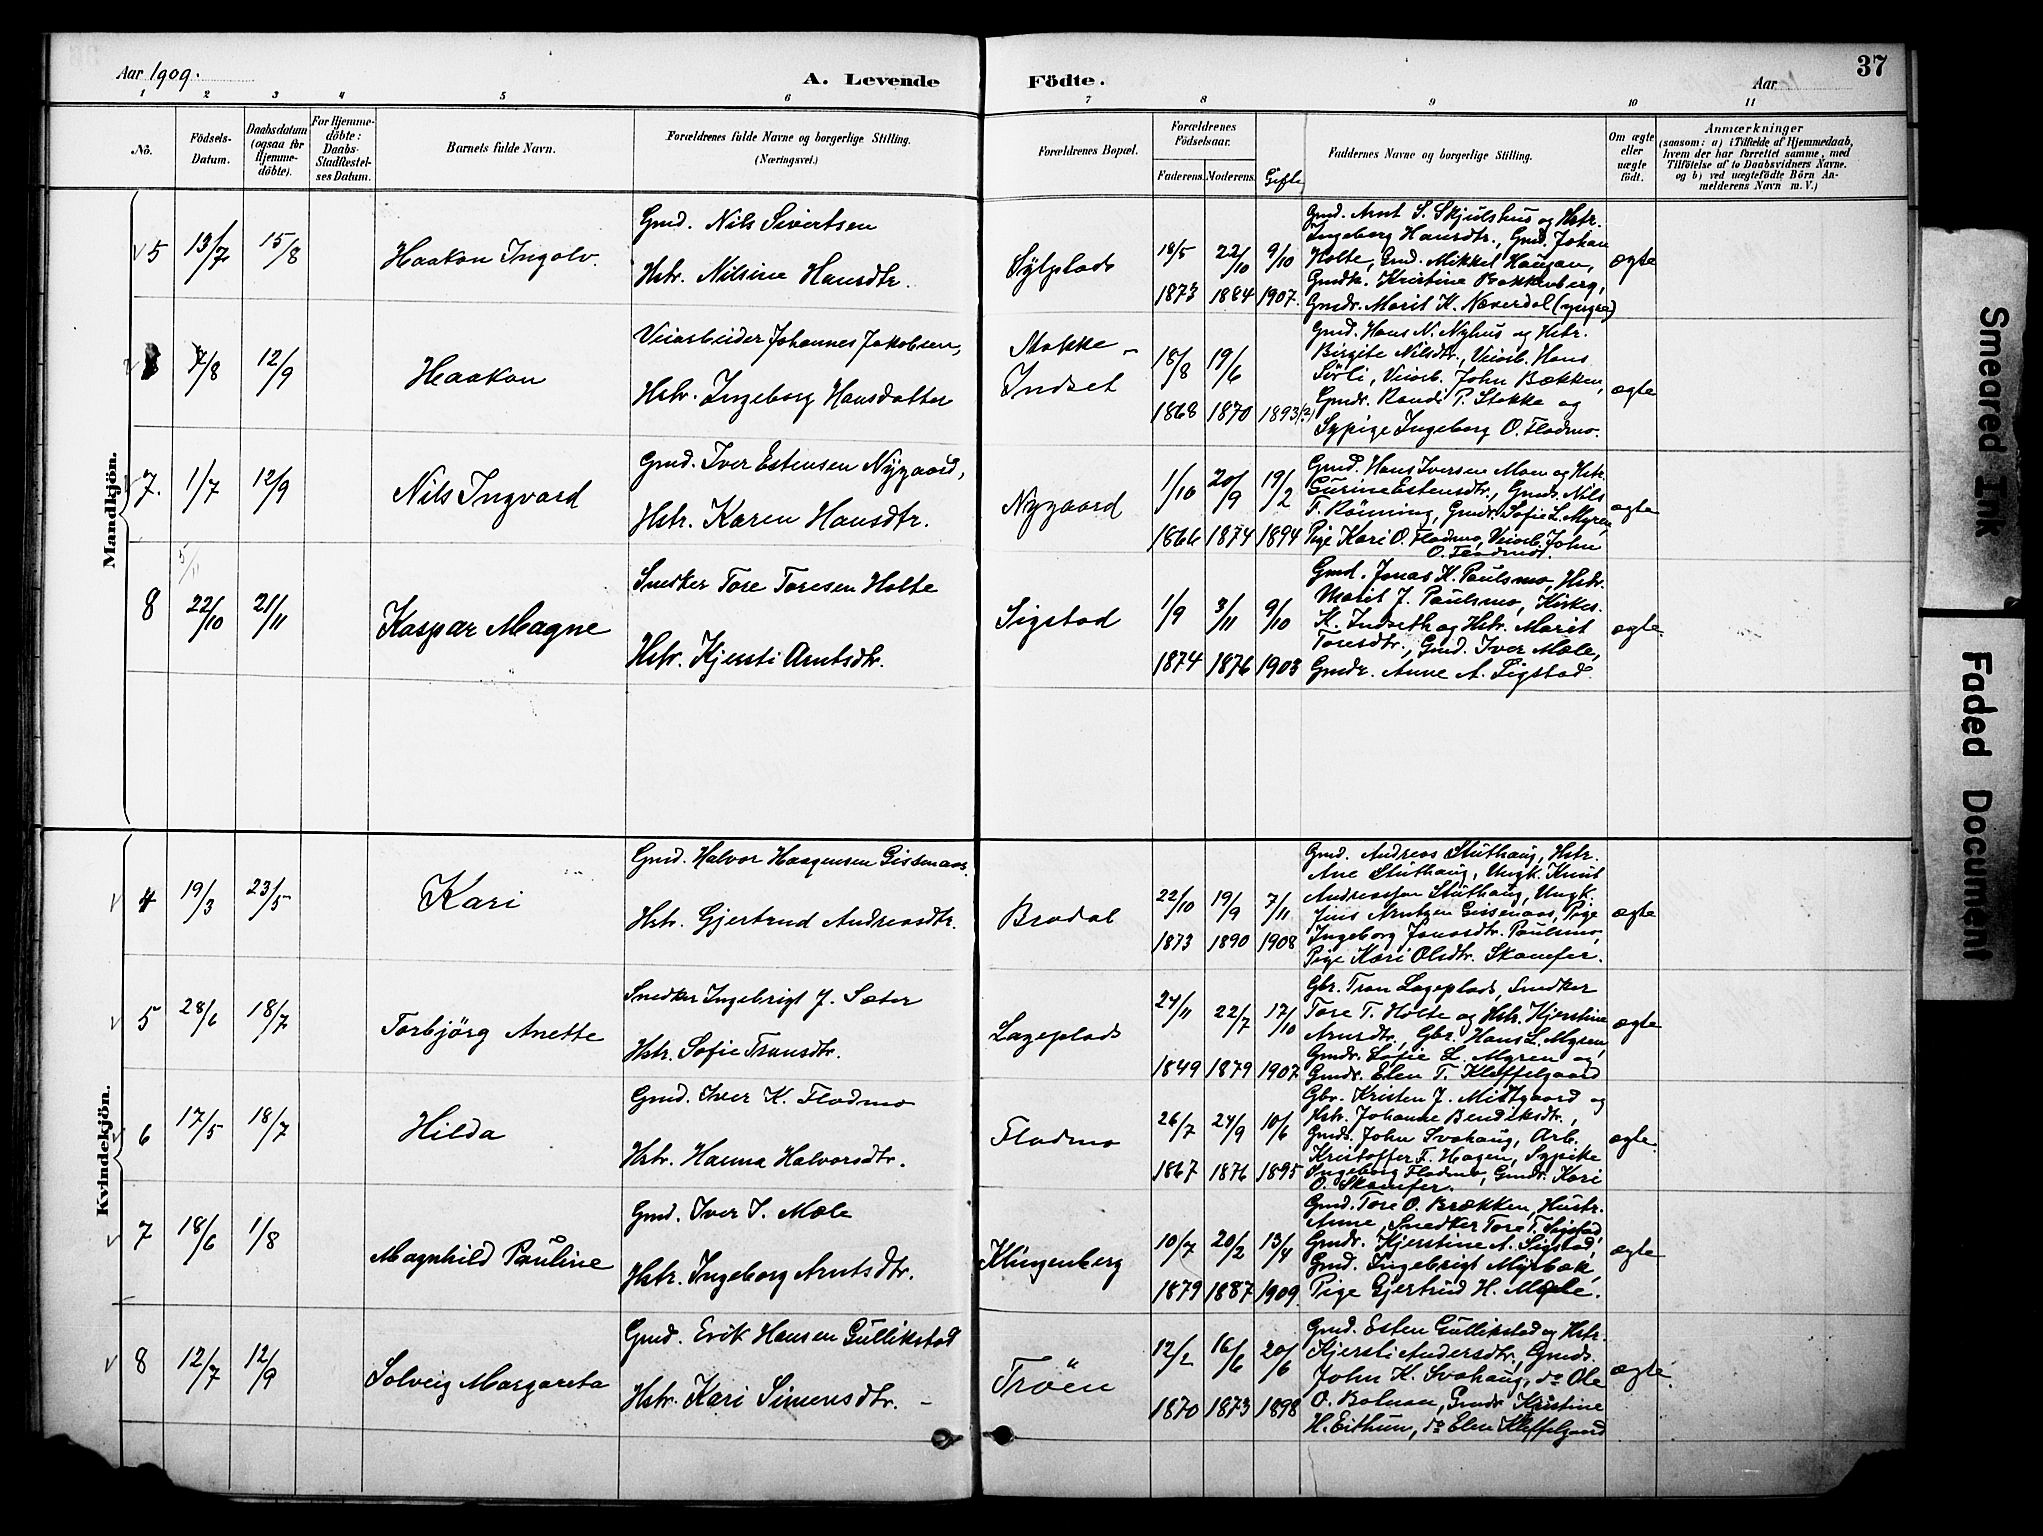 Aar 1909.
A. Levende
Födte.
Aar
37
1 2 3 4 5 6 7 8 9 10 11
No.
Födsels-
Datum.
Daabsdatum
(ogsaa for
Hjemme-
döbte).
For Hjemme-
döbte:
Daabs-
Stadfæstel-
ses Datum.
Barnets fulde Navn.
Forældrenes fulde Navne og borgerlige Stilling.
(Næringsvei.)
Forældrenes Bopæl.
Forældrenes
Födselsaar.
Faderens. Moderens. Gifte
Faddernes Navne og borgerlige Stilling.
Om ægte
eller
uægte
födt.
Anmærkninger
(saasom: a) i Tilfælde af Hjemmedaab,
hvem der har forrettet samme, med
Tilföielse af to Daabsvidners Navne.
og b) ved uægtefödte Börn An-
melderens Navn m. V.)
Mandkjön.
5 13/7 15/8 Haakon Ingolv.
Gmd. Nils Sivertsen
Hstr. Nilsine Hansdtr.
Sylplads
18/5 22/10 9/10
1873 1884 1907.
Gmd. Arnt S. Skjulshus og Hstr.
Ingeborg Hansdtr., Gmd. Johan
Holte, Gmd. Mikkel Haugan,
Gmdk. Kristine Bakkenberg,
Gmdr. Marit K. Næverdal (yngre)
ægte
7/8 12/9 Haakon
Veiarbeider Johannes Jakobsen,
Hstr. Ingeborg Hansdatter
Stokke -
Indset
18/8 19/6
1868 1870 1893(?)
Gmd. Hans N. Nyhus og Hstr.
Birgite Nilsdtr., Veiarb. Hans
Sørli, Veiarb. John Bækken,
Gmdr. Randi P. Stokke og
Sypige Ingeborg O. Fladmo.
ægte
7. 1/7 12/9 Nils Ingvard
Gmd. Iver Estensen Nygaard,
Hstr. Karen Hansdtr.
Nygaard
1/10 20/9 19/2
1866 1874 1894
Gmd. Hans Iversen Moen og Hstr.
Gurine Estensdtr., Gmds. Nils
T. Rönning, Gmdr. Sofie L. Myren,
Pige Kari O. Fladmo, Veiarb. John
O. Fladmo.
ægte
5/11
8 22/10 21/11 Kaspar Magne
Snedker Tore Toresen Holte
Hstr. Kjersti Arntsdtr.
Sigstad
1/9 3/11 9/10
1874 1876 1903
Gmd. Jonas K. Paulsmo, Hstr.
Marit J. Paulsmo, Kirkes.
K. Indseth og Hstr. Marit
Toresdtr., Gmd. Iver Mæle,
Gmdr. Anne A. Sigstad.
ægte.
Kvindekjön.
4 19/3 23/5 Kari
Gmd. Halvor Haagensen Gissenaas.
Hstr. Gjertrud Andreasdtr.
Bradal
22/10 19/9 7/11
1873 1890 1908
Gmd. Andreas Stuthaug, Hstr.
Ane Stuthaug, Ungk. Knut
Andreassen Stuthaug, Ungk.
Jens Arntzen Gissenaas, Pige
Ingeborg Jonasdtr. Paulsmo,
Pige Kari Olsdtr. Skamfer.
ægte
5 28/6 18/7 Torbjörg Anette
Snedker Ingebrigt J. Sæter
Hstr. Sofie Tronsdtr.
Lageplads
24/11 22/7 17/10
1849 1879 1907
Gbr. Tron Lageplads, Snedker
Tore T. Holte og Hstr. Kjerstine
Arnsdtr., Gbr. Hans L. Myren,
Gmdr. Sofie L. Myren og
Gmdr. Elen T. Kleffelgaard
ægte
6 17/5 18/7 Hilda
Gmd. Iver K. Fladmo
Hstr. Hanna Halvorsdtr.
Fladmo
26/7 24/9 10/6
1867 1876 1895
Gbr. Kristen J. Midtgaard og
Hstr. Johanne Bendiksdtr.,
Gmds. John Svahaug, Arb.
Kristoffer F. Hagen, Sypike
Ingeborg Fladmo, Gmdr. Kari
O. Skamfer.
ægte.
7 18/6 1/8 Magnhild Pauline
Gmd. Iver J. Mæle
Hstr. Ingeborg Arntsdtr.
Klingenberg
10/7 20/2 13/4
1879 1887 1909.
Gmd. Tore O. Brækken, Hustr.
Anne, Snedker Tore T. Sigstad,
Gmdr. Kjerstine A. Sigstad,
Gmd. Ingebrigt Myrbæk,
Pige Gjertrud H. Mæle.
ægte
8 12/7 12/9 Solveig Margareta
Gmd. Erik Hansen Gullikstad
Hstr. Kari Simensdtr. -
Tröen
12/2 16/6 20/6
1870 1873 1898
Gmd. Esten Gullikstad og Hstr.
Kjersti Andersdtr., Gmds.
John K. Svahaug, do Ole
O. Bolman, Gmdr. Kristine
H. Eithun, do Elen Kleffelgaard
ægte.
Smeared Ink
Faded Document